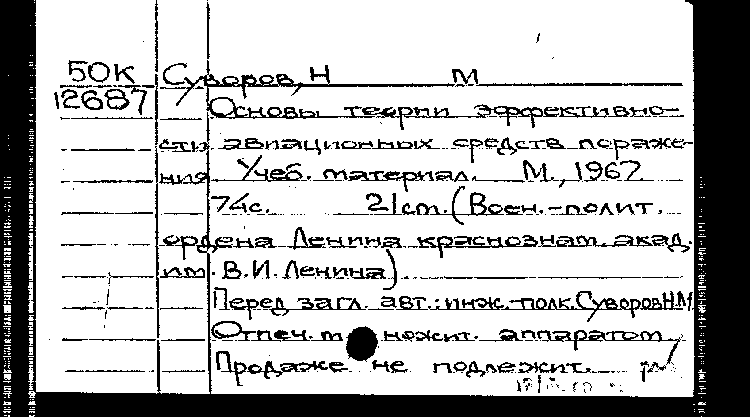 50К Суворов, Н М
12687 Основы теории эффективно-
сти авиационных средств пораже-
ния Учеб. материал. М., 1967
74с. 21cm. (Воен.-полит.
ордена Ленина краснознам. акад.
им. В.И. Ленина).
Перед загл. авт.: инж.-полк. Суворов Н.М.
Отпеч. множит. аппаратом
Продаже не подлежит.